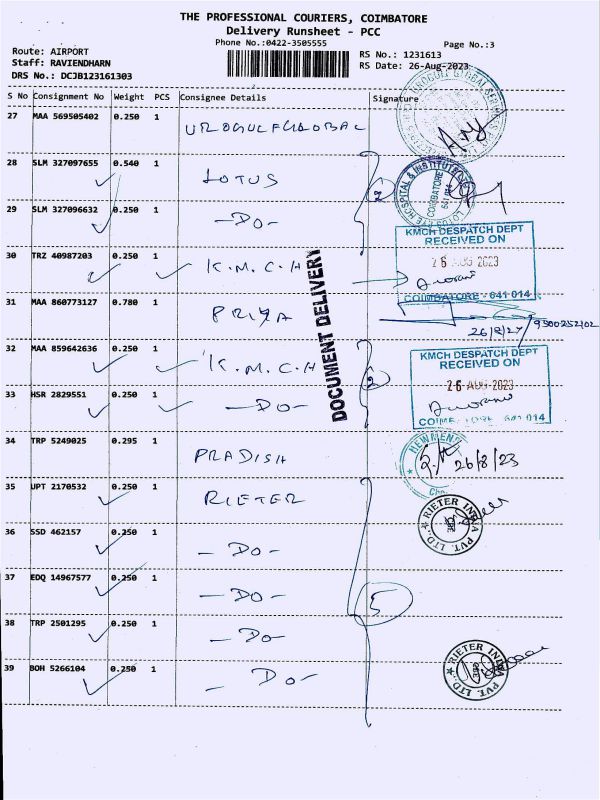 THE PROFESSIONAL COURIERS, COIMBATORE
Delivery Runsheet - PCC
Phone No.:0422-3505555
Page No.:3
Route: AIRPORT
RS No.: 1231613
Staff: RAVIENDHARN
RS Date: 26-Aug-2023
DRS No.: DCJB123161303
S No Consignment No Weight PCS Consignee Details Signature
27 MAA 569505402 0.250 1
28 SLM 327097655 0.540 1 LOTUS
29 SLM 327096632 0.250 1 -DO-
30 TRZ 40987203 0.250 1 K.M.C.H
KMCH DESPATCH DEPT
RECEIVED ON
26 AUG 2023
COIMBATORE - 641 014
31 MAA 860773127 0.780 1 PRIYA
DOCUMENT DELIVERY
32 MAA 859642636 1 K.M.C.H
KMCH DESPATCH DEPT
RECEIVED ON
26 AUG 2023
641 014
33 HSR 2829551 0.250 1 -DO-
34 TRP 5249025 0.295 1 PRADISH
26/8/23
35 UPT 2170532 0.250 1 RIETER
RIETER INDIA PVT. LTD.
36 SSD 462157 0.250 1 -DO-
37 EDQ 14967577 0.250 1 -DO-
5
38 TRP 2501295 0.250 1 -DO-
39 BOH 5266104 0.250 1 -DO-
RIETER INDIA PVT. LTD.